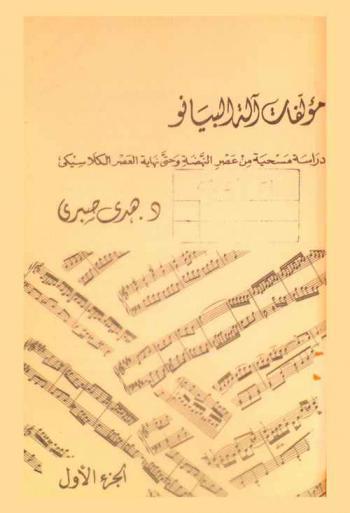 مؤلفات آلة البيانو
دراسة مسحية من عصر النهضة وحتى نهاية العصر الكلاسيكى
د. هدى صبرى
الجزء الأول